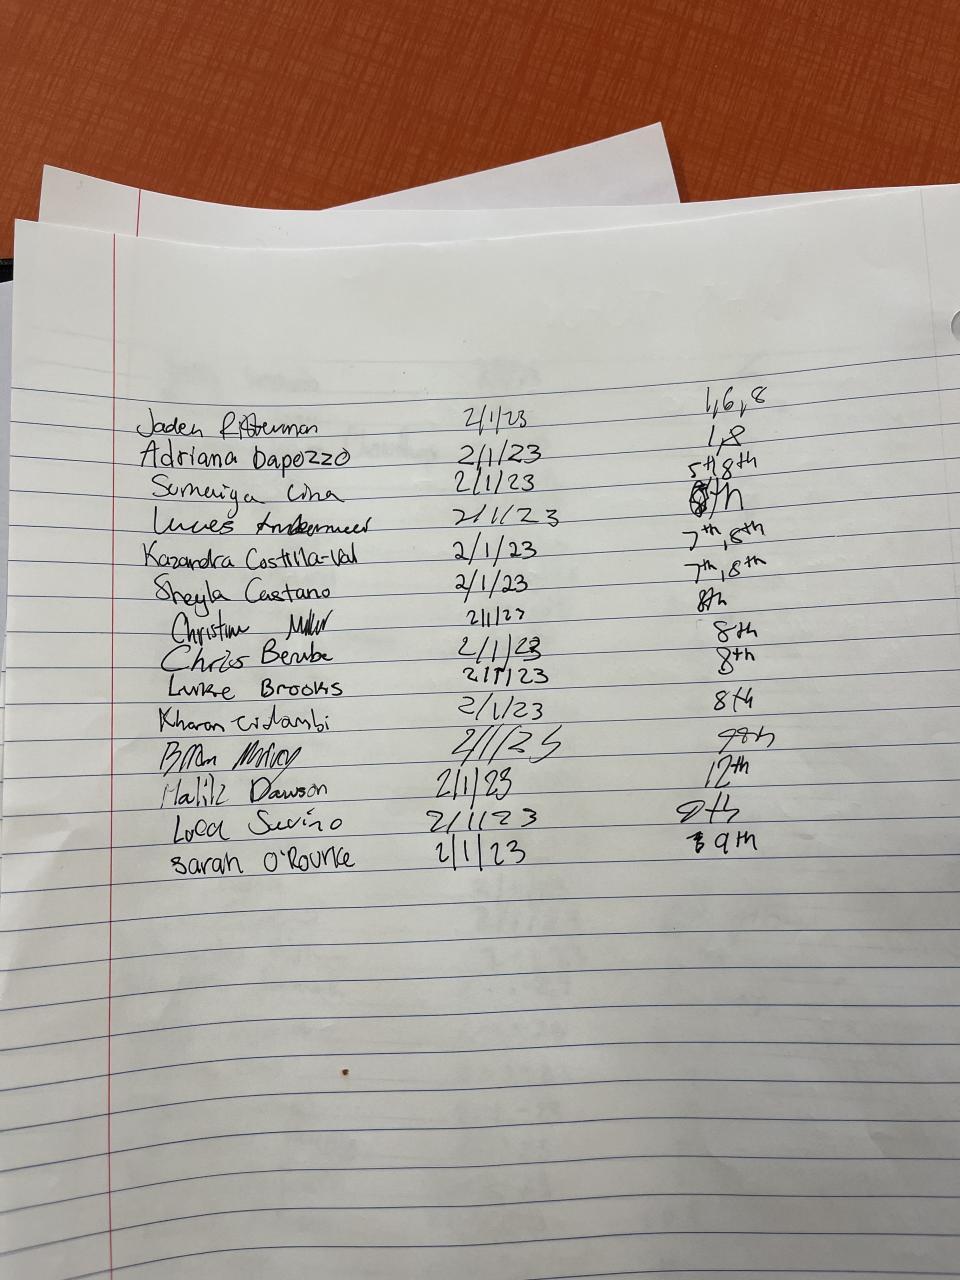 Jaden 2/1/23 1,6,8
Adriana Dapozzo 2/1/23 1,8
Sumaiya Cina 2/1/23 5th 8th
Lucas 2/1/23 8th
Kazandra Costilla-Val 2/1/23 7th, 8th
Sheyla Caetano 2/1/23 7th, 8th
Christine Miller 2/1/23 8th
Chris Berube 2/1/23 8th
Luke Brooks 2/1/23 8th
Kharan 2/1/23 8th
2/1/23
Malik Dawson 2/1/23 12th
Luca Savino 2/1/23 8th
Sarah O'Rourke 2/1/23 9th